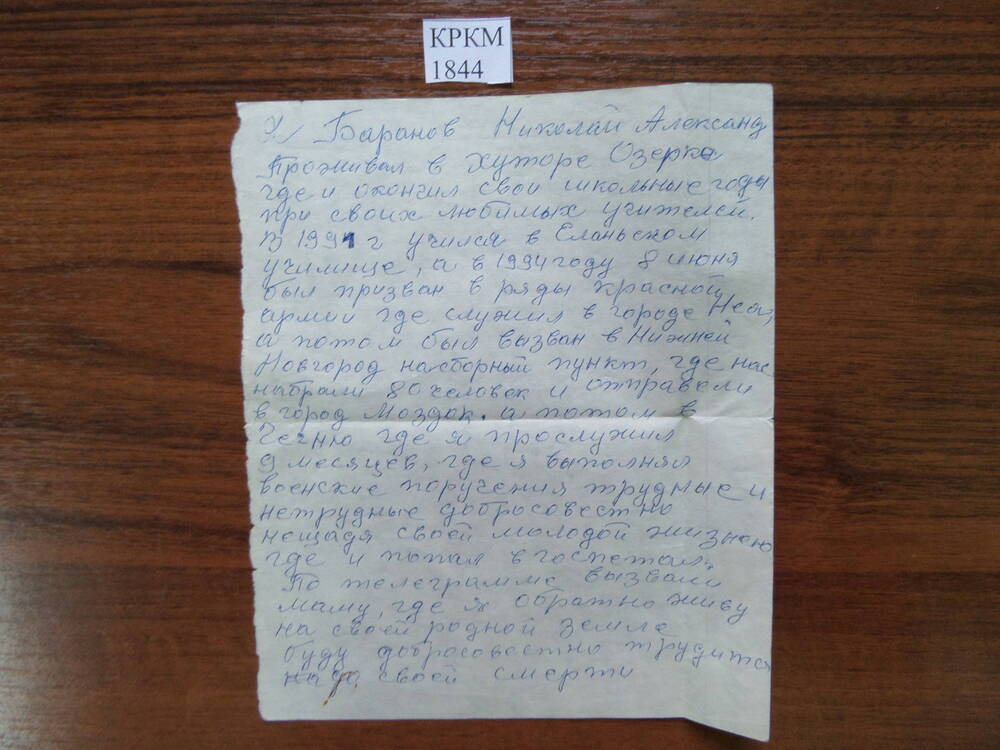 КРКМ
1844
Х/ Баранов Николай Александ
Проживал в хуторе Озерка
где и окончил свои школьные годы
при своих любимых учителей.
В 1991 г учился в Еланьском
училище, а в 1994 году 8 июня
был призван в ряды красной
армии где служил в городе
а потом был вызван в Нижней
Новгород на сборный пункт, где нас
набрали 80 человек и отправели
в город Моздок. а потом в
Чечню где я прослужил
9 месяцев, где я выполнял
военские поручения трудные и
нетрудные добросовестно
нещадя своей молодой жизнею
где и попал в госпеталь
По телеграмме вызвали
маму, где я обратно живу
на своей родной земле
буду добросовестно трудится
до своей смерти